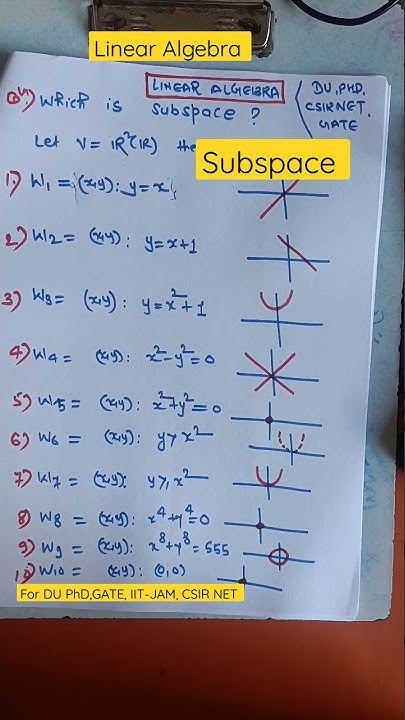 Linear Algebra
LINEAR ALGEBRA
DU, PHD,
CSIR NET,
GATE
Q.) Which is subspace ?
Let V = ℝ²(ℝ) the
Subspace
1) W₁ = {(x,y): y = x}
2) W₂ = (x,y): y = x+1
3) W₃ = (x,y): y = x²+1
4) W₄ = (x,y): x²-y² = 0
5) W₅ = (x,y): x²+y² = 0
6) W₆ = (x,y): y > x²
7) W₇ = (x,y): y ≥ x²
8) W₈ = (x,y): x⁴+y⁴ = 0
9) W₉ = (x,y): x⁸+y⁸ = 555
10) W₁₀ = (x,y): (0,0)
For DU PhD,GATE, IIT-JAM, CSIR NET